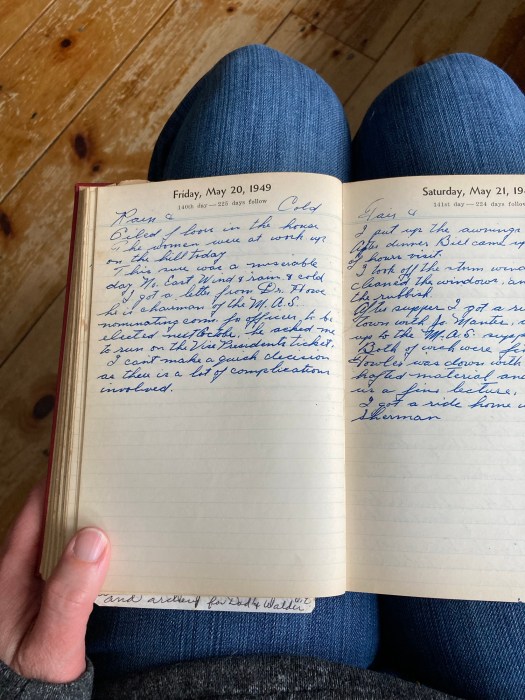 Friday, May 20, 1949
140th day—225 days follow
Rain & Cold
Oiled floors in the house
The women were at work up
on the hill today
This sure was a miserable
day No. East Wind & rain & cold
I got a letter from Dr. Howe
he is chairman of the M.A.S.
nominating comm for officers to be
elected next Octobe, he asked me
to run on the Vice Presidents ticket.
I can't make a quick decision
as there is a lot of complications
involved.
Saturday, May 21, 19
141st day—224 days follow
Fair &
I put up the awnings
After dinner Bill came u
hours visit.
I took off the storm
cleaned the windows, an
the rubbish.
After supper I got a ri
town with
up to the M.A.S. supp
Both of wich were
Fowler was down with
material and
us a fine lecture,
I got a ride home
Sherman
and for Dad & Walder